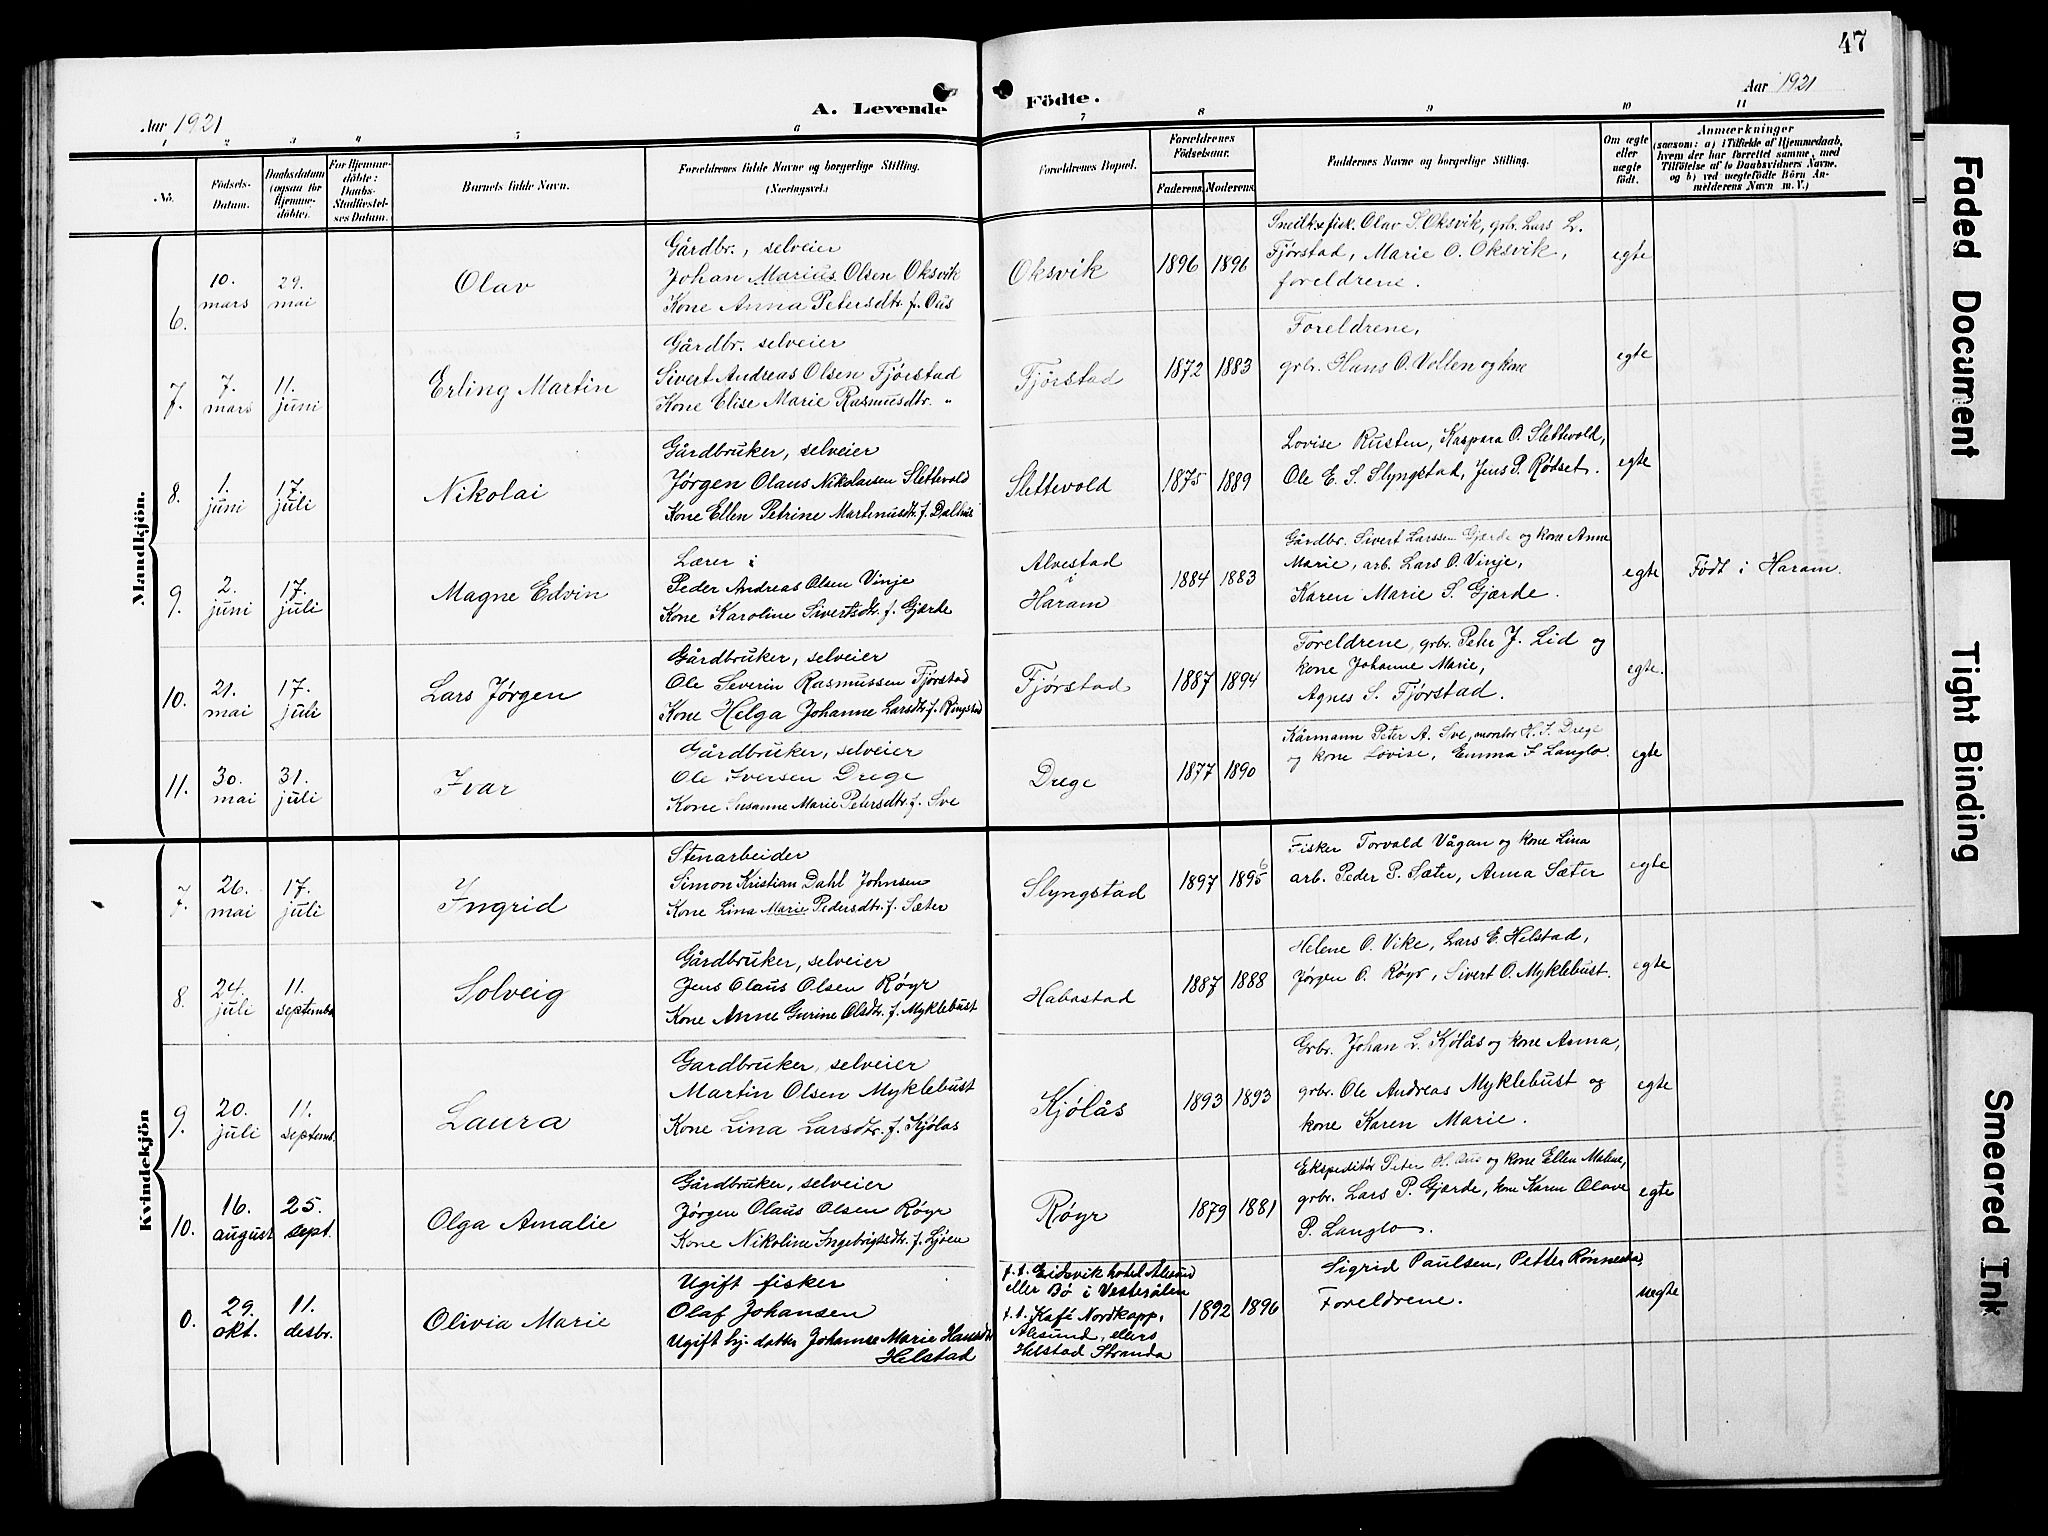 47
Aar 1921
A. Levende Födte.
Aar 1921
1 2 3 4 5 6 7 8 9 10 11
No.
Födsels-
Datum.
Daabsdatum
(ogsaa for
Hjemme-
döbte).
For Hjemme-
döbte:
Daabs-
Stadfæstel-
ses Datum.
Barnets fulde Navn.
Forældrenes fulde Navne og borgerlige Stilling.
(Næringsvei.)
Forældrenes Bopæl.
Forældrenes
Födselsaar.
Faderens. Moderens.
Faddernes Navne og borgerlige Stilling.
Om ægte
eller
uægte
født.
Anmærkninger
(saasom: a) i Tilfælde af Hjemmedaab,
hvem der har forrettet samme, med
Tilföielse af to Daabsvidners Navne,
og b) ved uægtefödte Börn An-
melderens Navn m. V.)
Mandkjön.
6.
10. mars
29. mai
Olav
Gårdbr., selveier
Johan Marius Olsen Oksvik
Kone Anna Petersdtr. f. Ous
Oksvik
1896 1896
Olav S. Oksvik, grb. Lars L.
Fjørstad, Marie O. Oksvik,
foreldrene.
egte
7.
7. mars
11. juni
Erling Martin
Gårdbr. selveier
Sivert Andreas Olsen Fjørstad
Kone Elise Marie Rasmusdtr. "
Fjørstad
1872 1883
Foreldrene,
grbr. Hans O. Vollen og kone
egte
8.
1. juni
17. juli
Nikolai
Gårdbruker, selveier
Jørgen Olaus Nikolaisen Slettevold
Kone Ellen Petrine Martinusdtr. f. Dalhus
Slettevold
1875 1889
Lovise Rusten, Kaspara O. Slettevold,
Ole E. S. Slyngstad, Jens P. Rødset.
egte
9.
2. juni
17. juli
Magne Edvin
Lærer i
Peder Andreas Olsen Vinje
Kone Karoline Sivertsdtr. f. Gjærde
Alvestad
i
Haram
1884 1883
Gårdbr. Sivert Larssen Gjærde og kone Anne
Marie, arb. Lars O. Vinje,
Karen Marie S. Gjærde.
egte
Født i Haram.
10.
21. mai
17. juli
Lars Jørgen
Gårdbruker, selveier
Ole Severin Rasmussen Fjørstad
Kone Helga Johanne Larsdtr. f. Ringstad
Fjørstad
1887 1894
Foreldrene, grbr. Peter J. Lid og
kone Johanne Marie,
Agnes S. Fjørstad.
egte.
11.
30. mai
31. juli
Ivar
Gårdbruker, selveier
Ole Iversen Drege
Kone Susanne Marie Petersdtr. f. Sve
Drege
1877 1890
Kårmann Peter A. Sve, montør H. I. Drege
og kone Lovise, Emma I. Langlo.
egte
Kvindekjön
7.
26. mai
17. juli
Ingrid
Stenarbeider
Simon Kristian Dahl Johnsen
Kone Lina Marie Pedersdtr. f. Sæter
Slyngstad
1897 1895 6
Fisker Torvald Vågan og kone Lina
arb. Peder P. Sæter, Anna Sæter
egte
8.
24. juli
11. septembr.
Solveig
Gårdbruker, selveier
Jens Olaus Olsen Røyr
Kone Anne Gurine Olsdtr. f. Myklebust
Habostad
1887 1888
Helene O. Vike, Lars E. Helstad,
Jørgen O. Røyr, Sivert O. Myklebust.
egte
9.
20. juli
11. septemb.
Laura
Gardbruker, selveier
Martin Olsen Myklebust
Kone Lina Larsdtr. f. Kjølås
Kjølås
1893 1893
Grbr. Johan L. Kjølås og kone Anna,
grbr. Ole Andreas Myklebust og
kone Karen Marie.
egte
10.
16. august
25. sept.
Olga Amalie
Gårdbruker, selveier
Jørgen Olaus Olsen Røyr
Kone Nikoline Ingebrigtsdtr. f. Ljøen
Røyr
1879 1881
Ekspeditør Peter O. Ous og kone Ellen Malene,
grbr. Lars P. Gjærde, kone Karen Olave
P. Langlo.
egte
0.
29. okt.
11. desbr.
Olivia Marie
Ugift fisker
Olaf Johansen
Ugift hj. datter Johanne Marie Hansdtr
Helstad
f. t. Eidsvik hotel Ålesund
eller Bø i Vesterålen
f. t. Kafé Nordkapp,
Ålesund, ellers
Helstad Stranda
1892 1896
Sigrid Paulsen, Petter Rønnestad,
Foreldrene.
uegte
Faded Document
Tight Binding
Smeared Ink